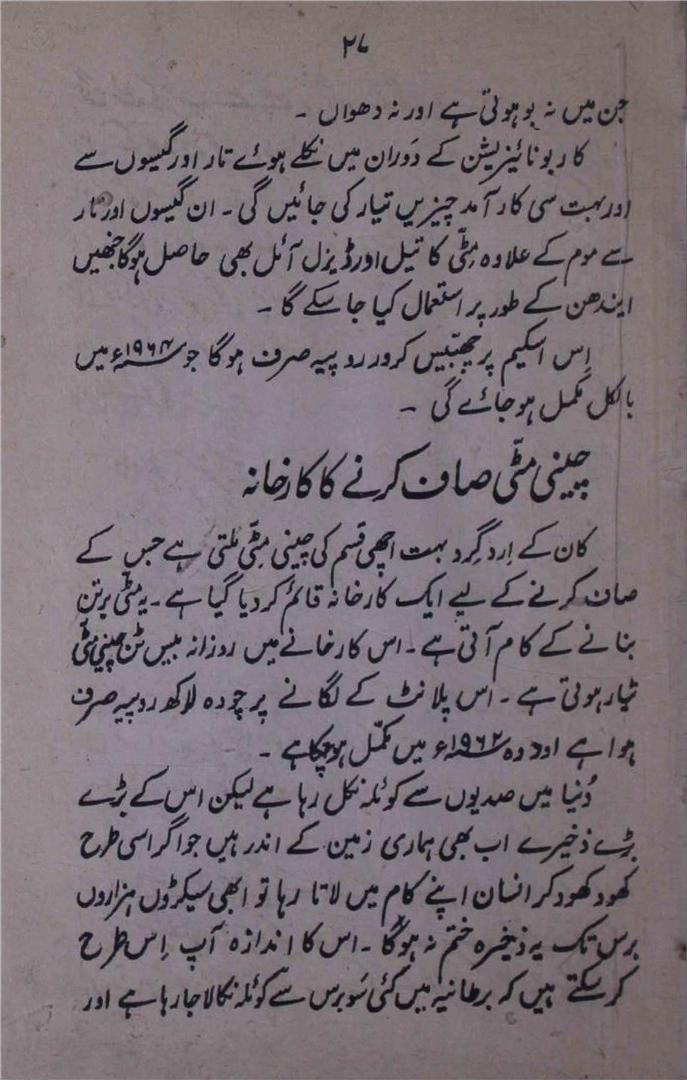 ۲۷
جن میں نہ بو ہوتی ہے اور نہ دھواں ۔
کاربونائیزیشن کے دَوران میں نکلے ہوئے تار اور گیسوں سے
اور بہت سی کار آمد چیزیں تیار کی جائیں گی ۔ ان گیسوں اور تار
سے موم کے علاوہ مِٹّی کا تیل اور ڈیزل آئل بھی حاصل ہوگا جنھیں
ایندھن کے طور پر استعمال کیا جا سکے گا ۔
اِس اسکیم پر چھبّیس کرور روپیہ صرف ہوگا جو ۱۹۶۴ء میں
بالکل مکمل ہو جائے گی ۔
چینی مٹّی صاف کرنے کا کارخانہ
کان کے اِرد گِرد بہت اچھی قسم کی چینی مٹّی ملتی ہے جس کے
صاف کرنے کے لیے ایک کارخانہ قائم کر دیا گیا ہے ۔ یہ مٹّی برتن
بنانے کے کام آتی ہے ۔ اس کارخانے میں روزانہ بیس ٹن چینی مٹّی
تیار ہوتی ہے ۔ اس پلانٹ کے لگانے پر چودہ لاکھ روپیہ صرف
ہوا ہے اور وہ ۱۹۶۲ء میں مکمّل ہو چکا ہے ۔
دُنیا میں صدیوں سے کوئلہ نکل رہا ہے لیکن اس کے بڑے
بڑے ذخیرے اب بھی ہماری زمین کے اندر ہیں جو اگر اسی طرح
کھود کھود کر انسان اپنے کام میں لاتا رہا تو ابھی سیکڑوں ہزاروں
برس تک یہ ذخیرہ ختم نہ ہوگا ۔ اس کا اندازہ آپ اِس طرح
کر سکتے ہیں کہ برطانیہ میں کئی سَو برس سے کوئلہ نکالا جا رہا ہے اور